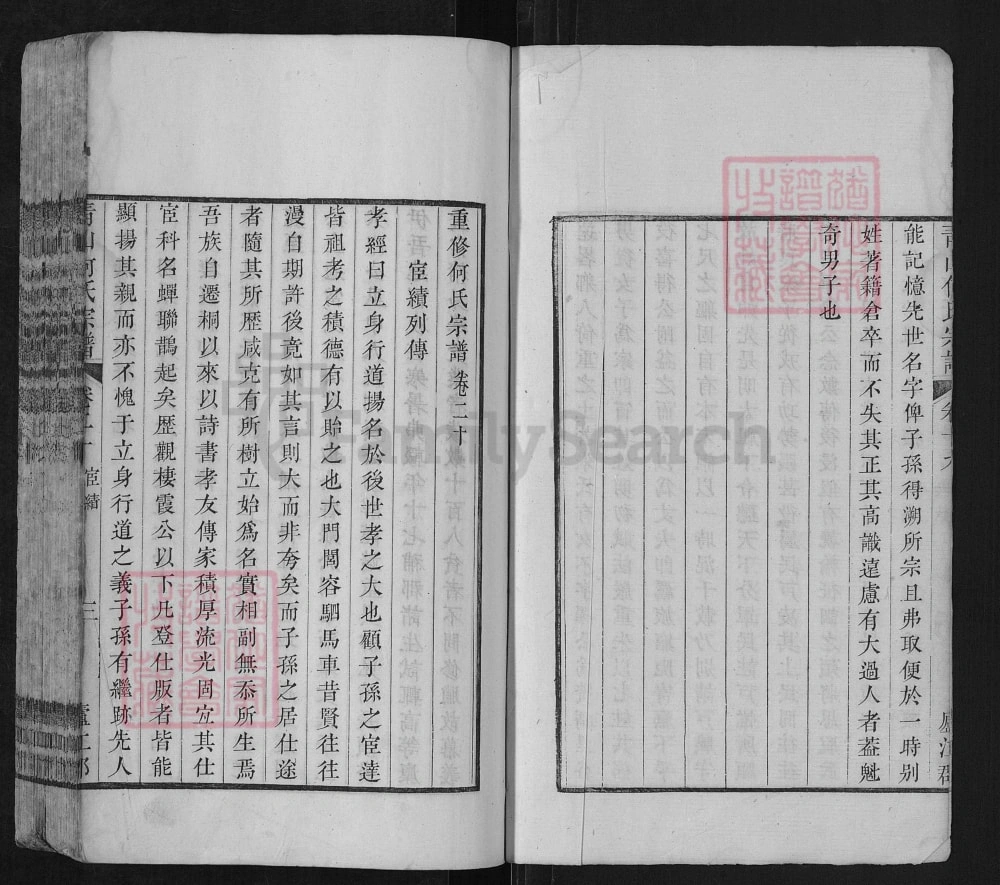 能記憶先世名字俾子孫得溯所宗且弗取便於一時别
姓著籍倉卒而不失其正其高識遠慮有大過人者葢魁
奇男子也
重修何氏宗譜 卷二十
宦績列傳
孝經曰立身行道揚名於後世孝之大也顧子孫之宦達
皆祖考之積德有以貽之也大門閭容駟馬車昔賢往往
漫自期許後竟如其言則大而非夸矣而子孫之居仕途
者隨其所歴咸克有所樹立始爲名實相副無忝所生焉
吾族自遷桐以來以詩書孝友傳家積厚流光固宜其仕
宦科名蟬聯鵲起矣歴觀棲霞公以下凡登仕版者皆能
顯揚其親而亦不愧于立身行道之義子孫有繼跡先人
青山何氏宗譜 卷二十 宦績 三
FamilySearch